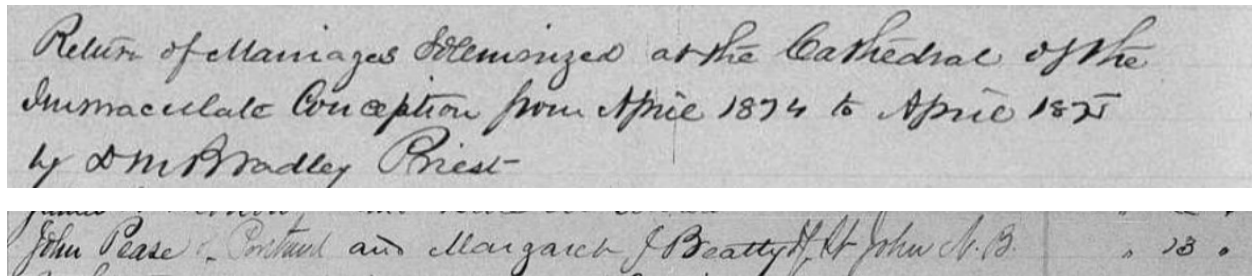 Return of Marriages Solemnized at the Cathedral of the
Immaculate Conception from April 1874 to April 1875
by D M Bradley Priest
John Pease of Portland and Margaret J Beatty of St John N. B. " 13 "